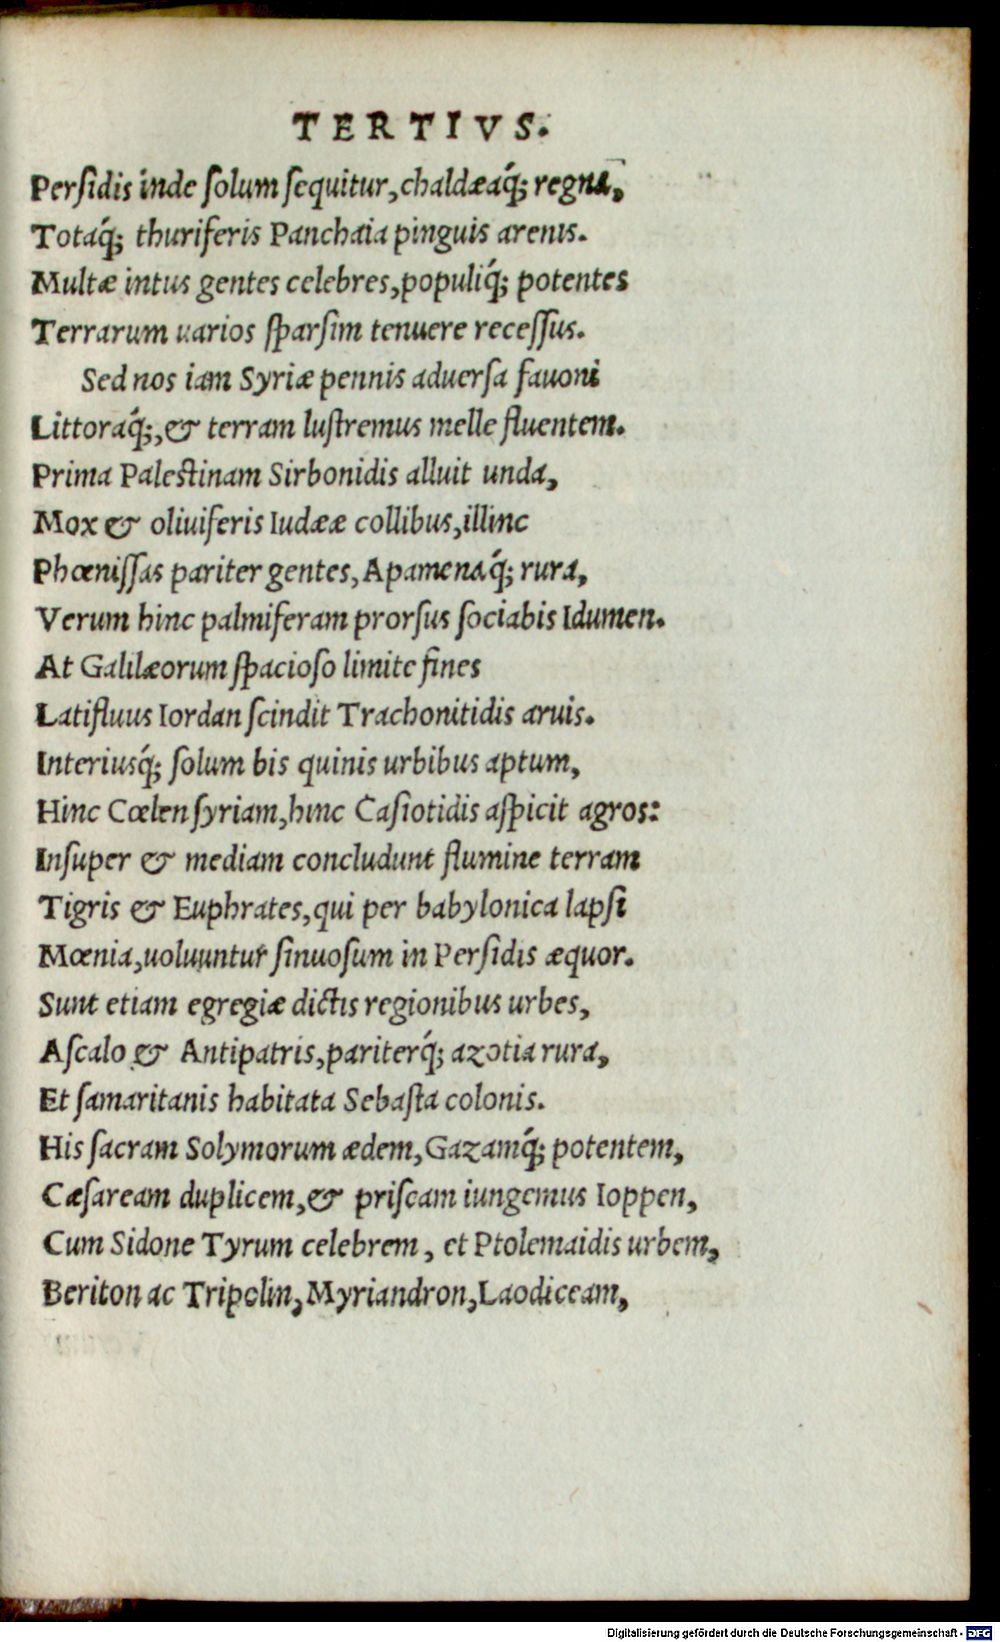 TERTIVS.
Perſidis inde ſolum ſequitur, chaldæaq́; regna,
Totaq́; thuriferis Panchaia pinguis arenis.
Multæ intus gentes celebres, populiq́; potentes
Terrarum uarios ſparſim tenuere receſſus.
Sed nos iam Syriæ pennis aduerſa fauoni
Littoraq́;, & terram luſtremus melle fluentem.
Prima Palestinam Sirbonidis alluit unda,
Mox & oliuiferis Iudææ collibus, illinc
Phœniſſas pariter gentes, Apamenaq́; rura,
Verum hinc palmiferam prorſus ſociabis Idumen.
At Galilæorum ſpacioſo limite fines
Latifluus Iordan ſcindit Trachonitidis aruis.
Interiusq́; ſolum bis quinis urbibus aptum,
Hinc Cœlen ſyriam, hinc Caſiotidis aſpicit agros:
Inſuper & mediam concludunt flumine terram
Tigris & Euphrates, qui per babylonica lapſi
Mœnia, uoluuntur ſinuoſum in Perſidis æquor.
Sunt etiam egregiæ dictis regionibus urbes,
Aſcalo & Antipatris, pariterq́; azotia rura,
Et ſamaritanis habitata Sebaſta colonis.
His ſacram Solymorum ædem, Gazamq́; potentem,
Cæſaream duplicem, & priſcam iungemus Ioppen,
Cum Sidone Tyrum celebrem, et Ptolemaidis urbem,
Beriton ac Tripolin, Myriandron, Laodiceam,
Digitalisierung gefördert durch die Deutsche Forschungsgemeinschaft - DFG